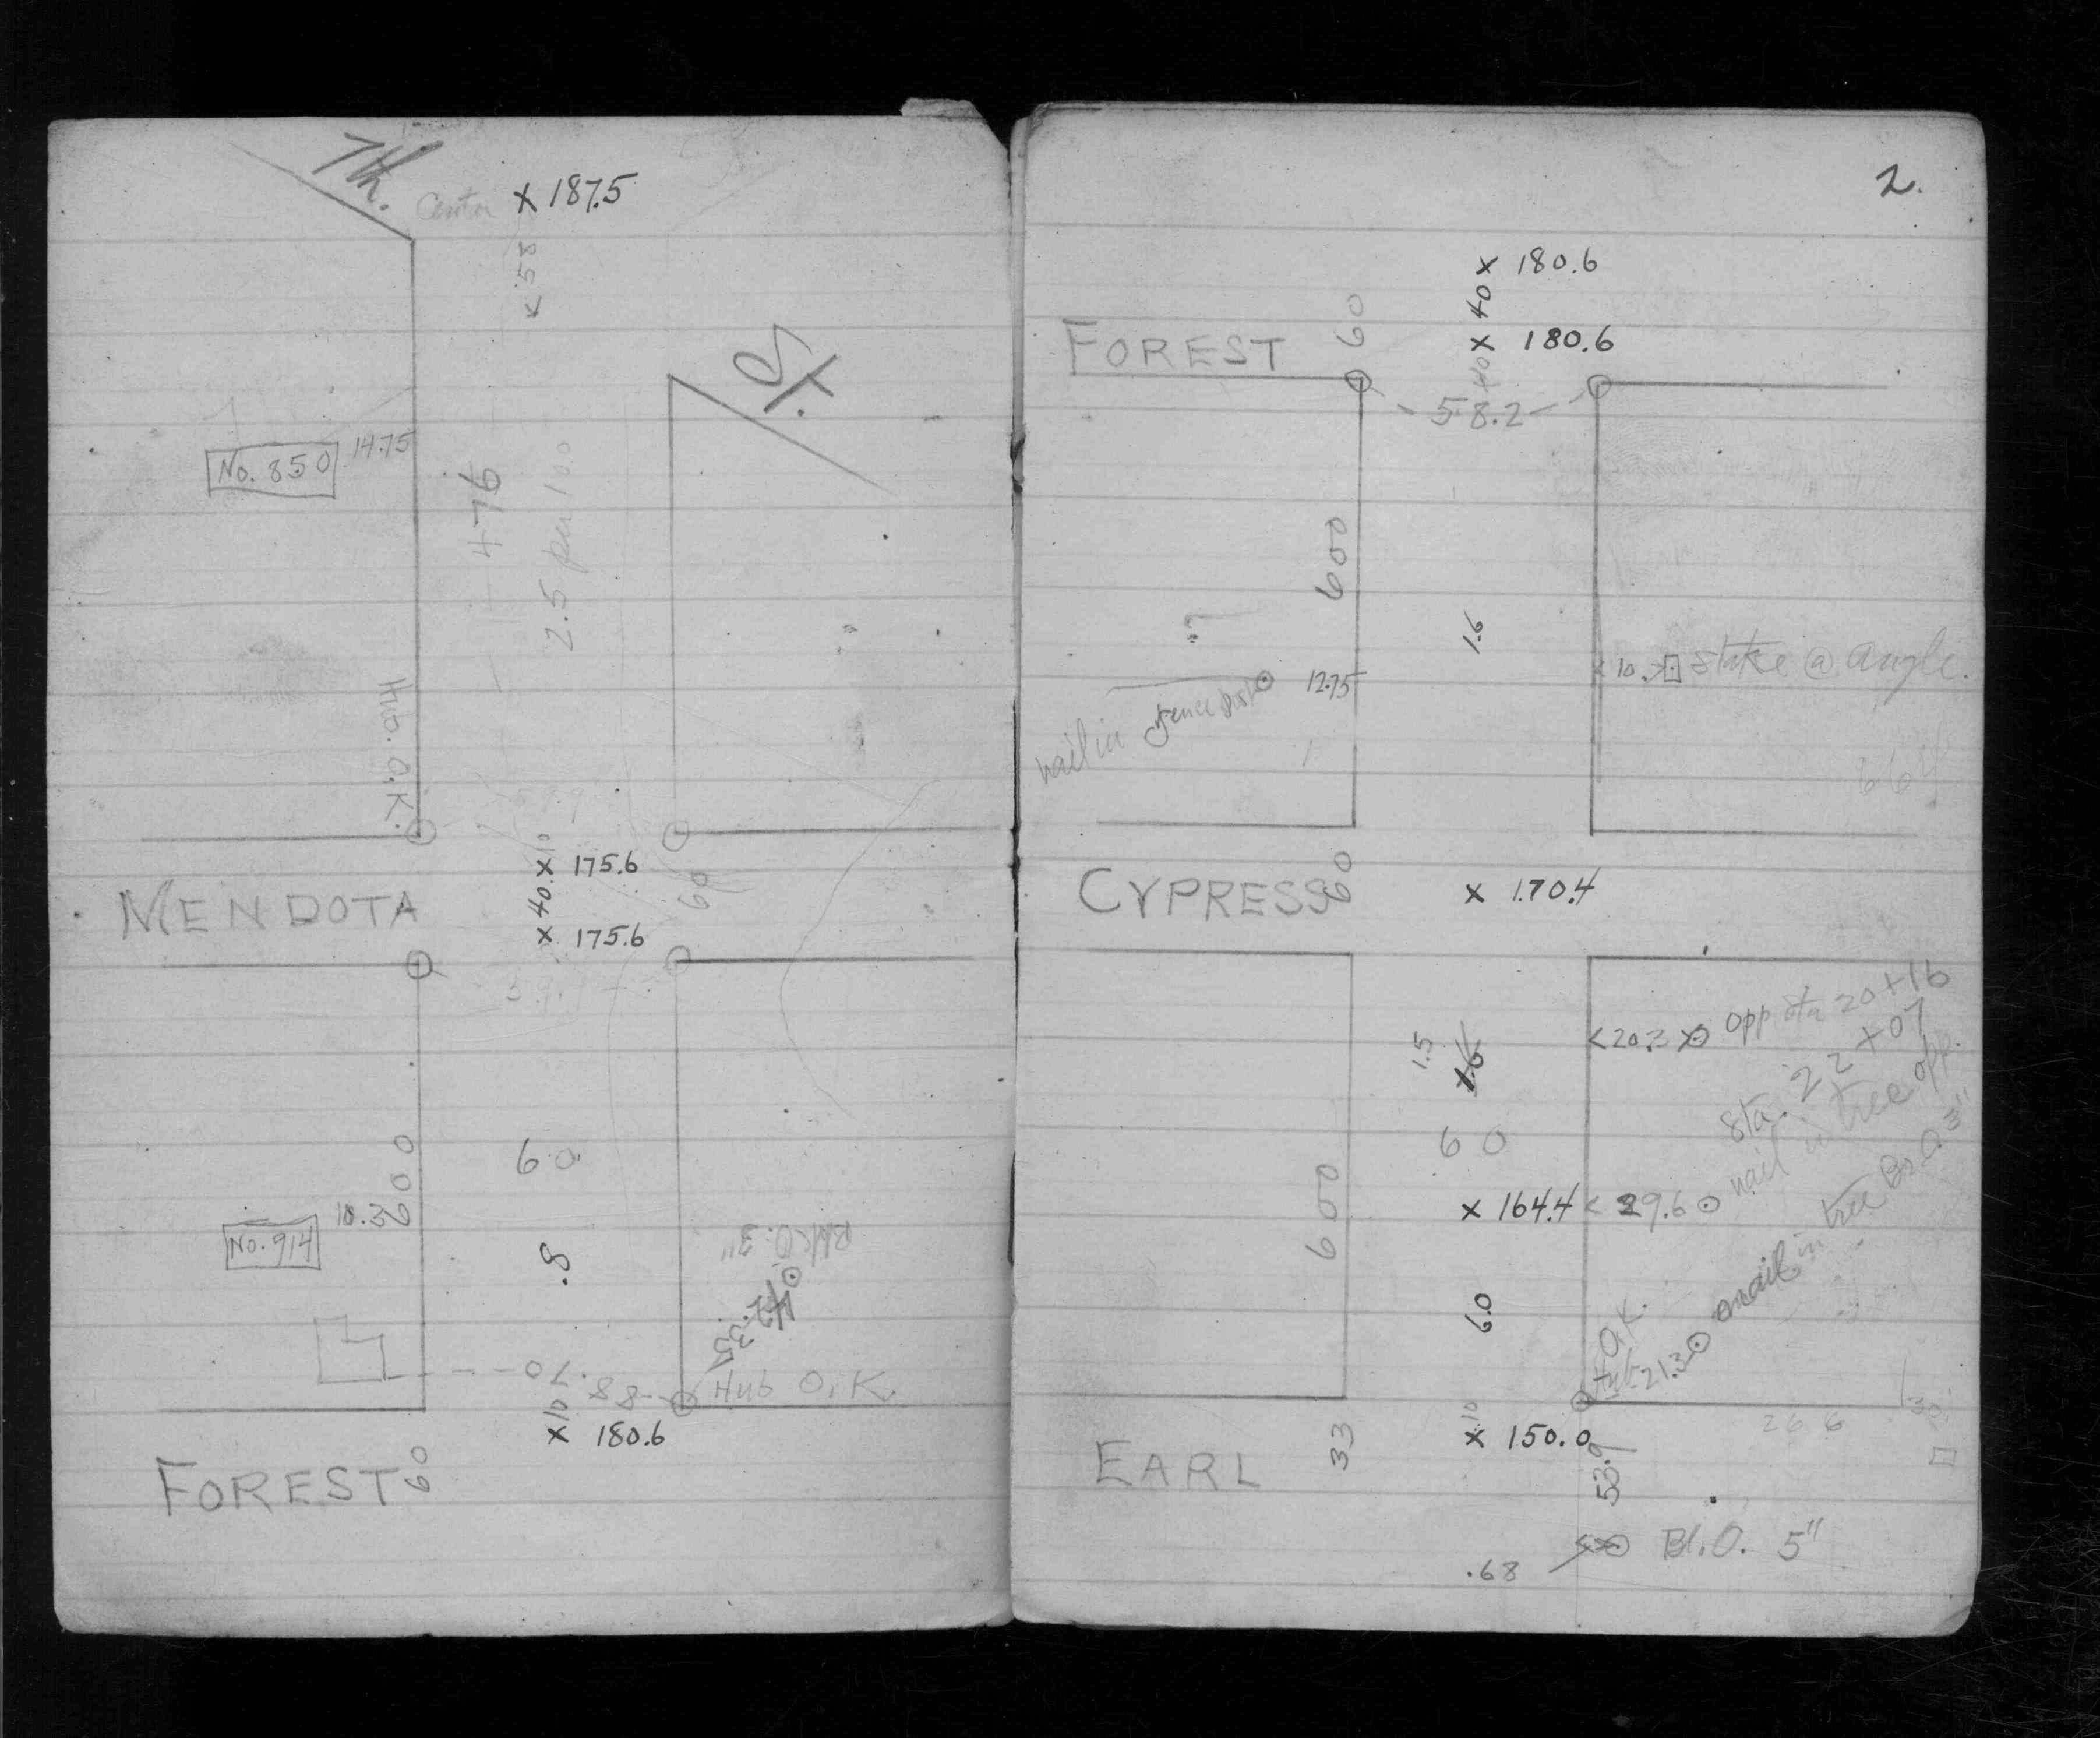 7th.
Center
x 187.5
<.58
St.
No. 850
14.75
476
2.5 per 100
Hub. O.K.
59.9
10
x 175.6
40
x 175.6
MENDOTA
60
600
60
No. 914
10.3
.8
42.35
70.
88
Hub O.K.
10
x 180.6
FOREST
60
2.
x 180.6
40
x 180.6
40
FOREST
60
58.2
600
1.6
12.75
nail in fence post
<10.> stake @ angle.
CYPRESS
60
x 170.4
<20.3 opp sta 20+16
1.5
1.6
sta. 22+07
nail in tree opp.
60
x 164.4
< 29.6
600
60
nail in tree Br.O. 3"
Hub O.K.
21.3
10
x 150.0
EARL
33
53.9
266
30
Bl.O. 5"
.68